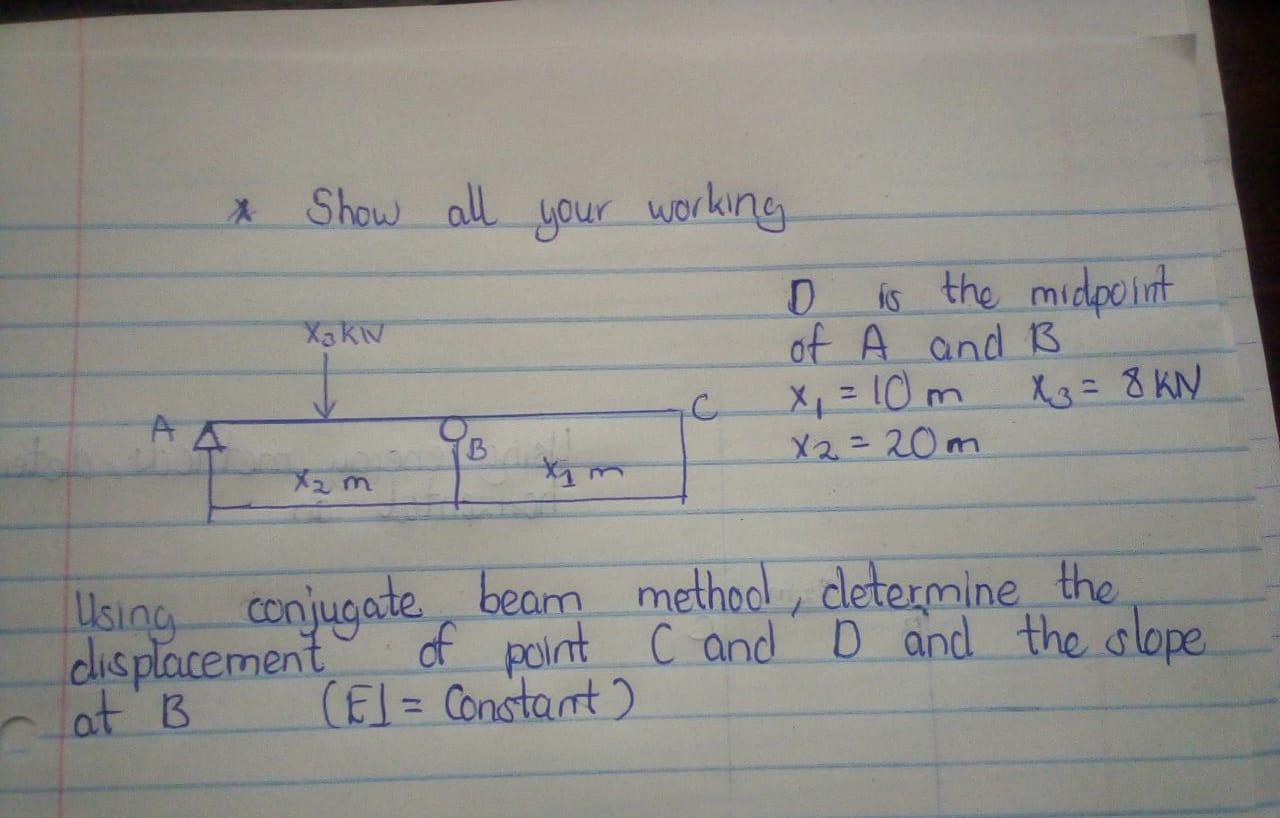 * Show all your working
D is the midpoint
of A and B
x₁ = 10 m x₃ = 8 KN
x₂ = 20 m
x₃ KN
A
B
C
x₂ m
x₁ m
Using conjugate beam method, determine the
displacement of point C and D and the slope
at B (EI = Constant)